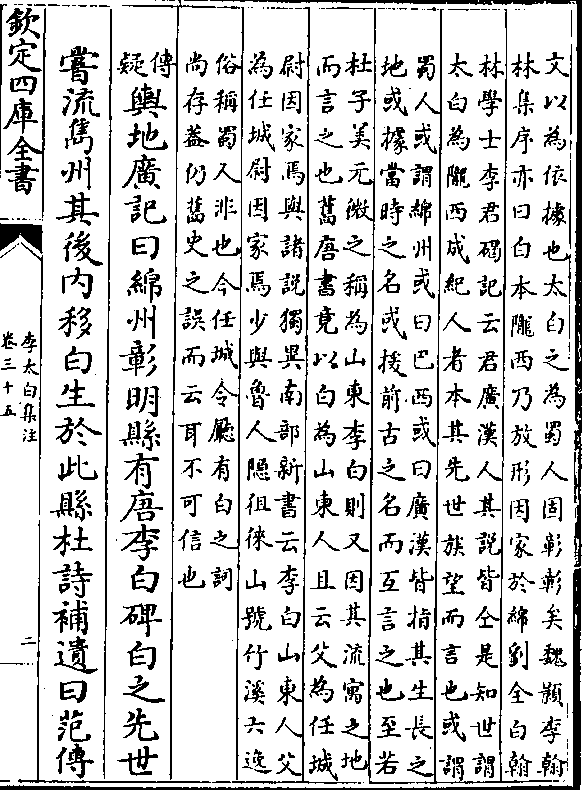 文以為依據也太白之為蜀人固彰彰矣魏顥李翰
林集序亦曰白本隴西乃放形因家於綿劉全白翰
林學士李君碣記云君廣漢人其說皆仝是知世謂
太白為隴西成紀人者本其先世族望而言也或謂
蜀人或謂綿州或曰巴西或曰廣漢皆指其生長之
地或據當時之名或援前古之名而互言之也至若
杜子美元微之稱為山東李白則又因其流寓之地
而言之也舊唐書竟以白為山東人且云父為任城
尉因家焉與諸說獨異南部新書云李白山東人父
為任城尉因家焉少與魯人隠徂徠山號竹溪六逸
俗稱蜀人非也今任城令㕔有白之詞
尚存葢仍舊史之誤而云耳不可信也
傳
疑輿地廣記曰綿州彰明縣有唐李白碑白之先世
嘗流嶲州其後内移白生於此縣杜詩補遺曰范傳
欽定四庫全書
李太白集注
卷三十五
二